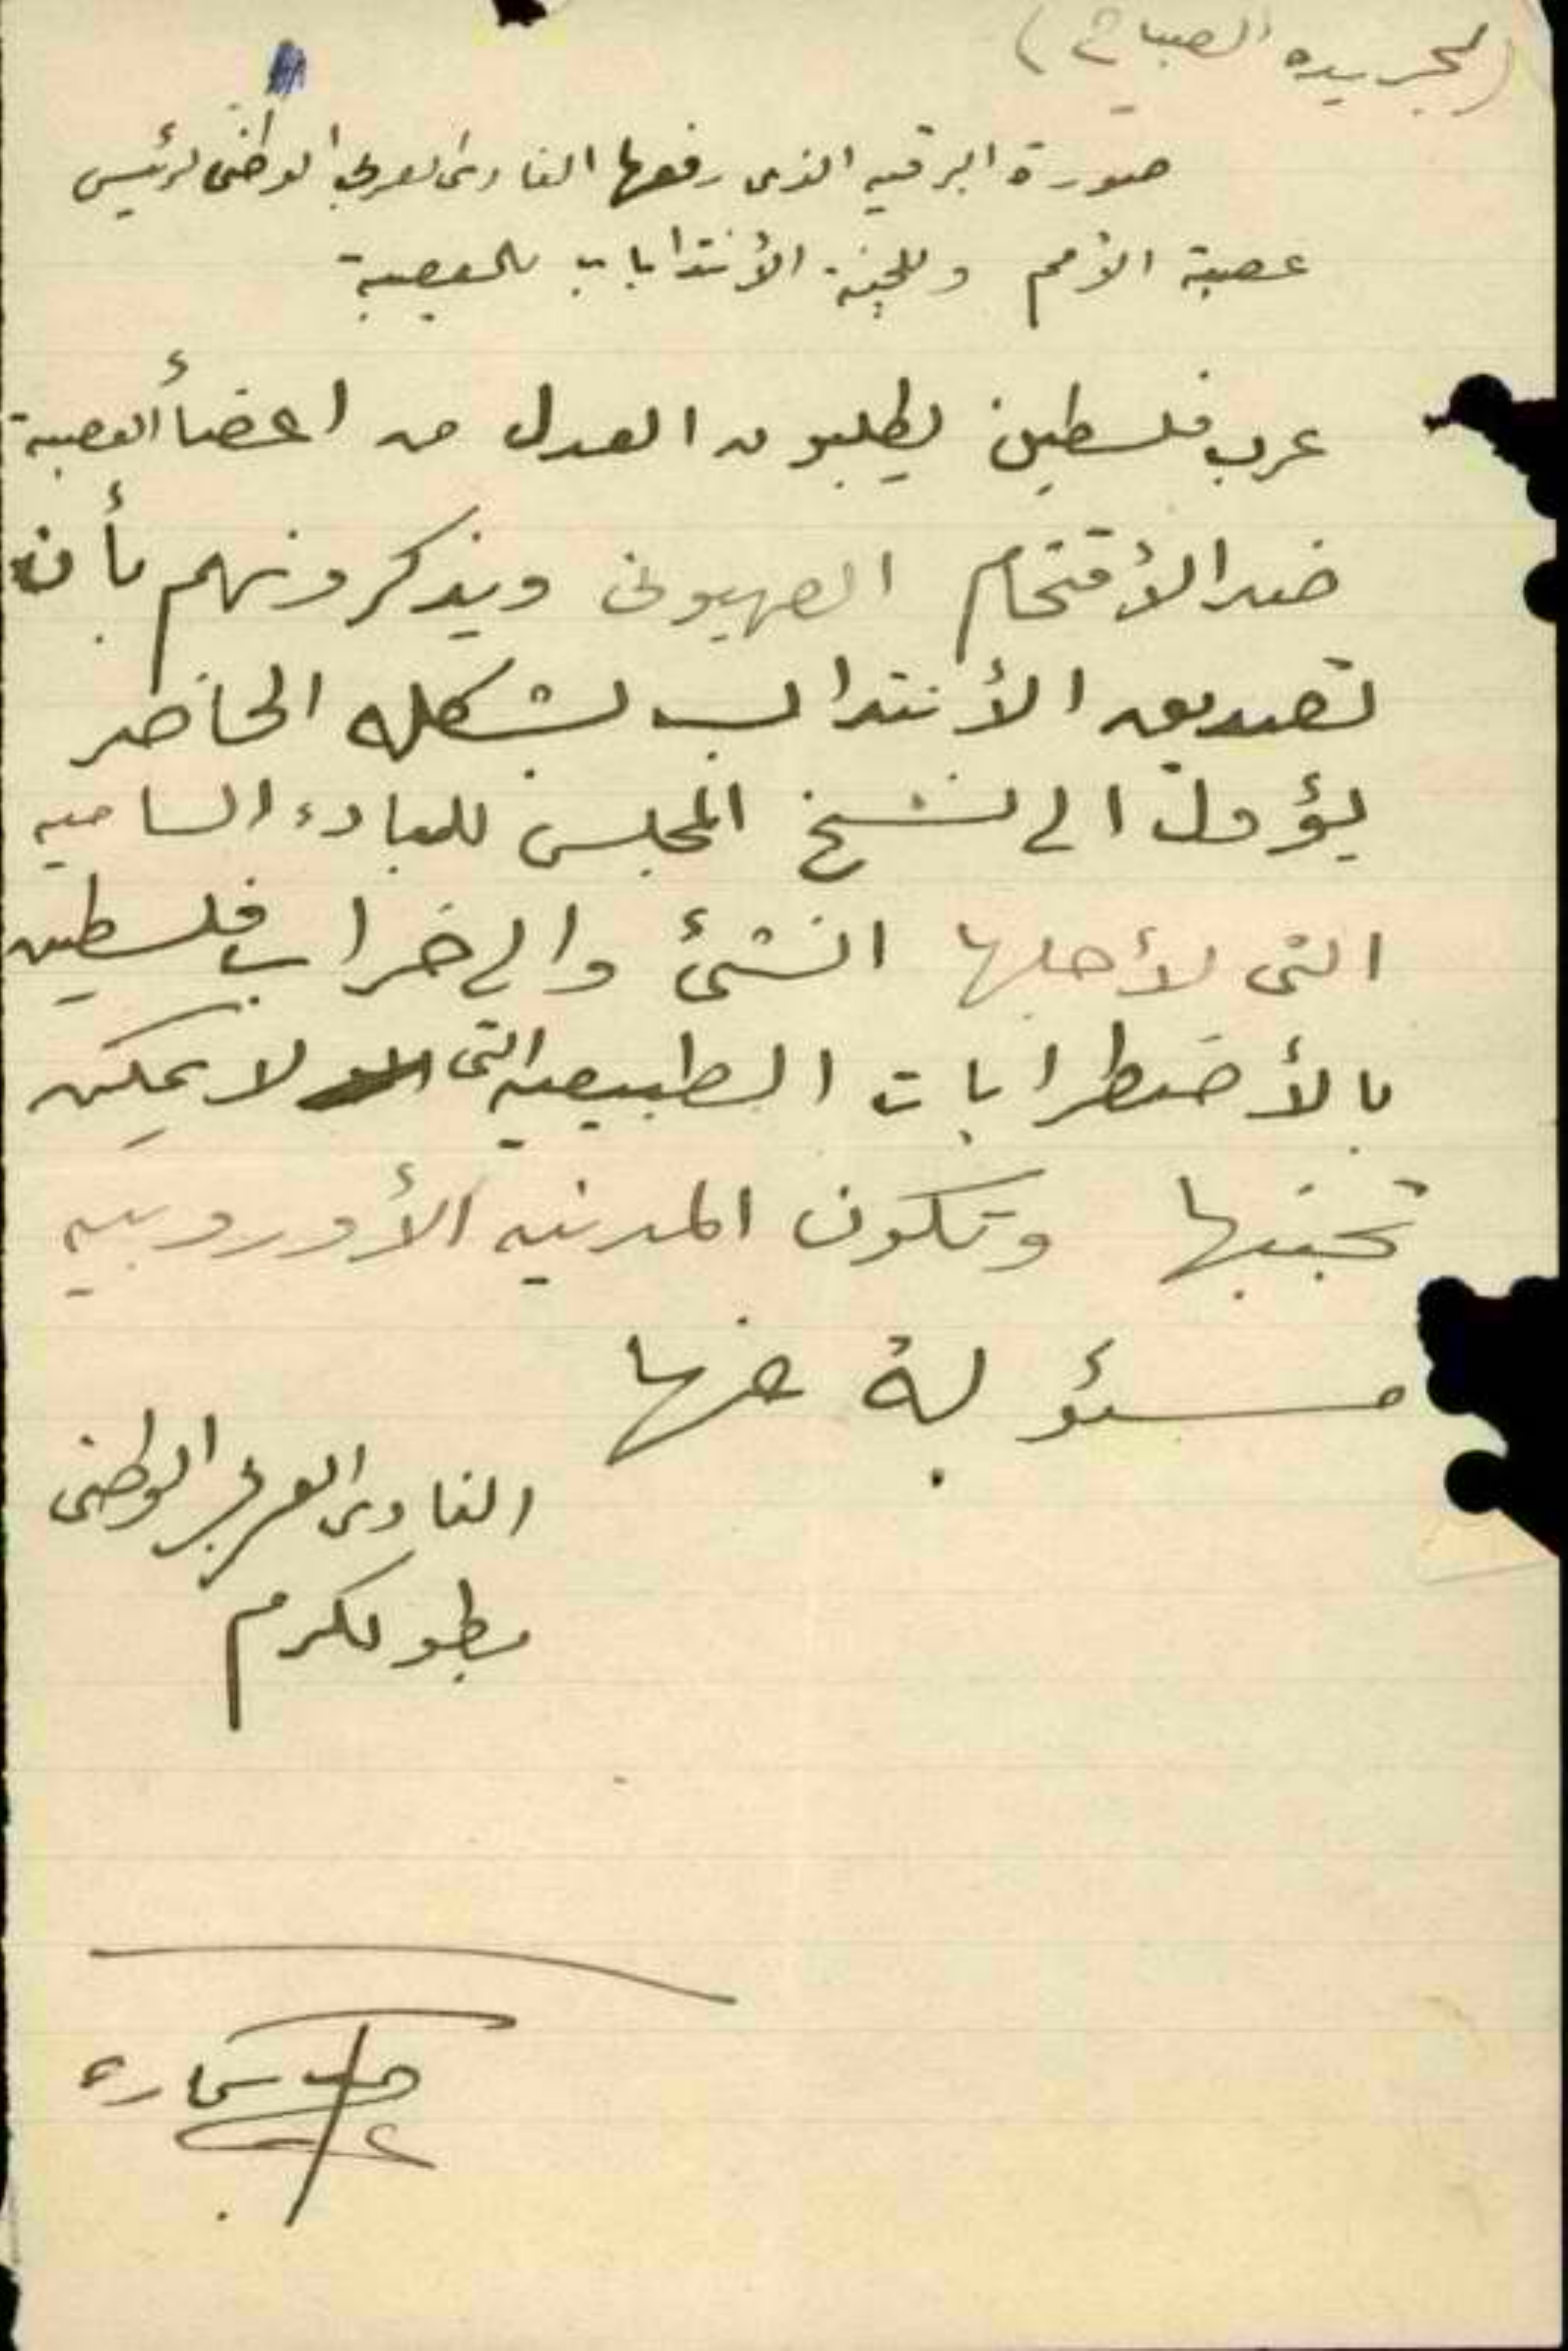 (لجريدة الصباح)
صورة البرقيه الذى رفعها النادى العربي الوطنى لرئيس
عصبة الأمم وللجنة الأنتدابات بالعصبة
عرب فلسطين يطلبون العدل من اعضأ العصبة
ضد الأقتحام الصهيونى ويذكرونهم بأن
تصديق الأنتداب بشكله الحاضر
يؤول الى نسخ المجلس للمبادء الساميه
التى لأجلها انشئ والى خراب فلسطين
بالأضطرابات الطبيعيه التى لا يمكن
تجنبها وتكون المدنيه الأوروبيه
مسئولية عنها
النادى العربي الوطنى
بطولكرم
سماره